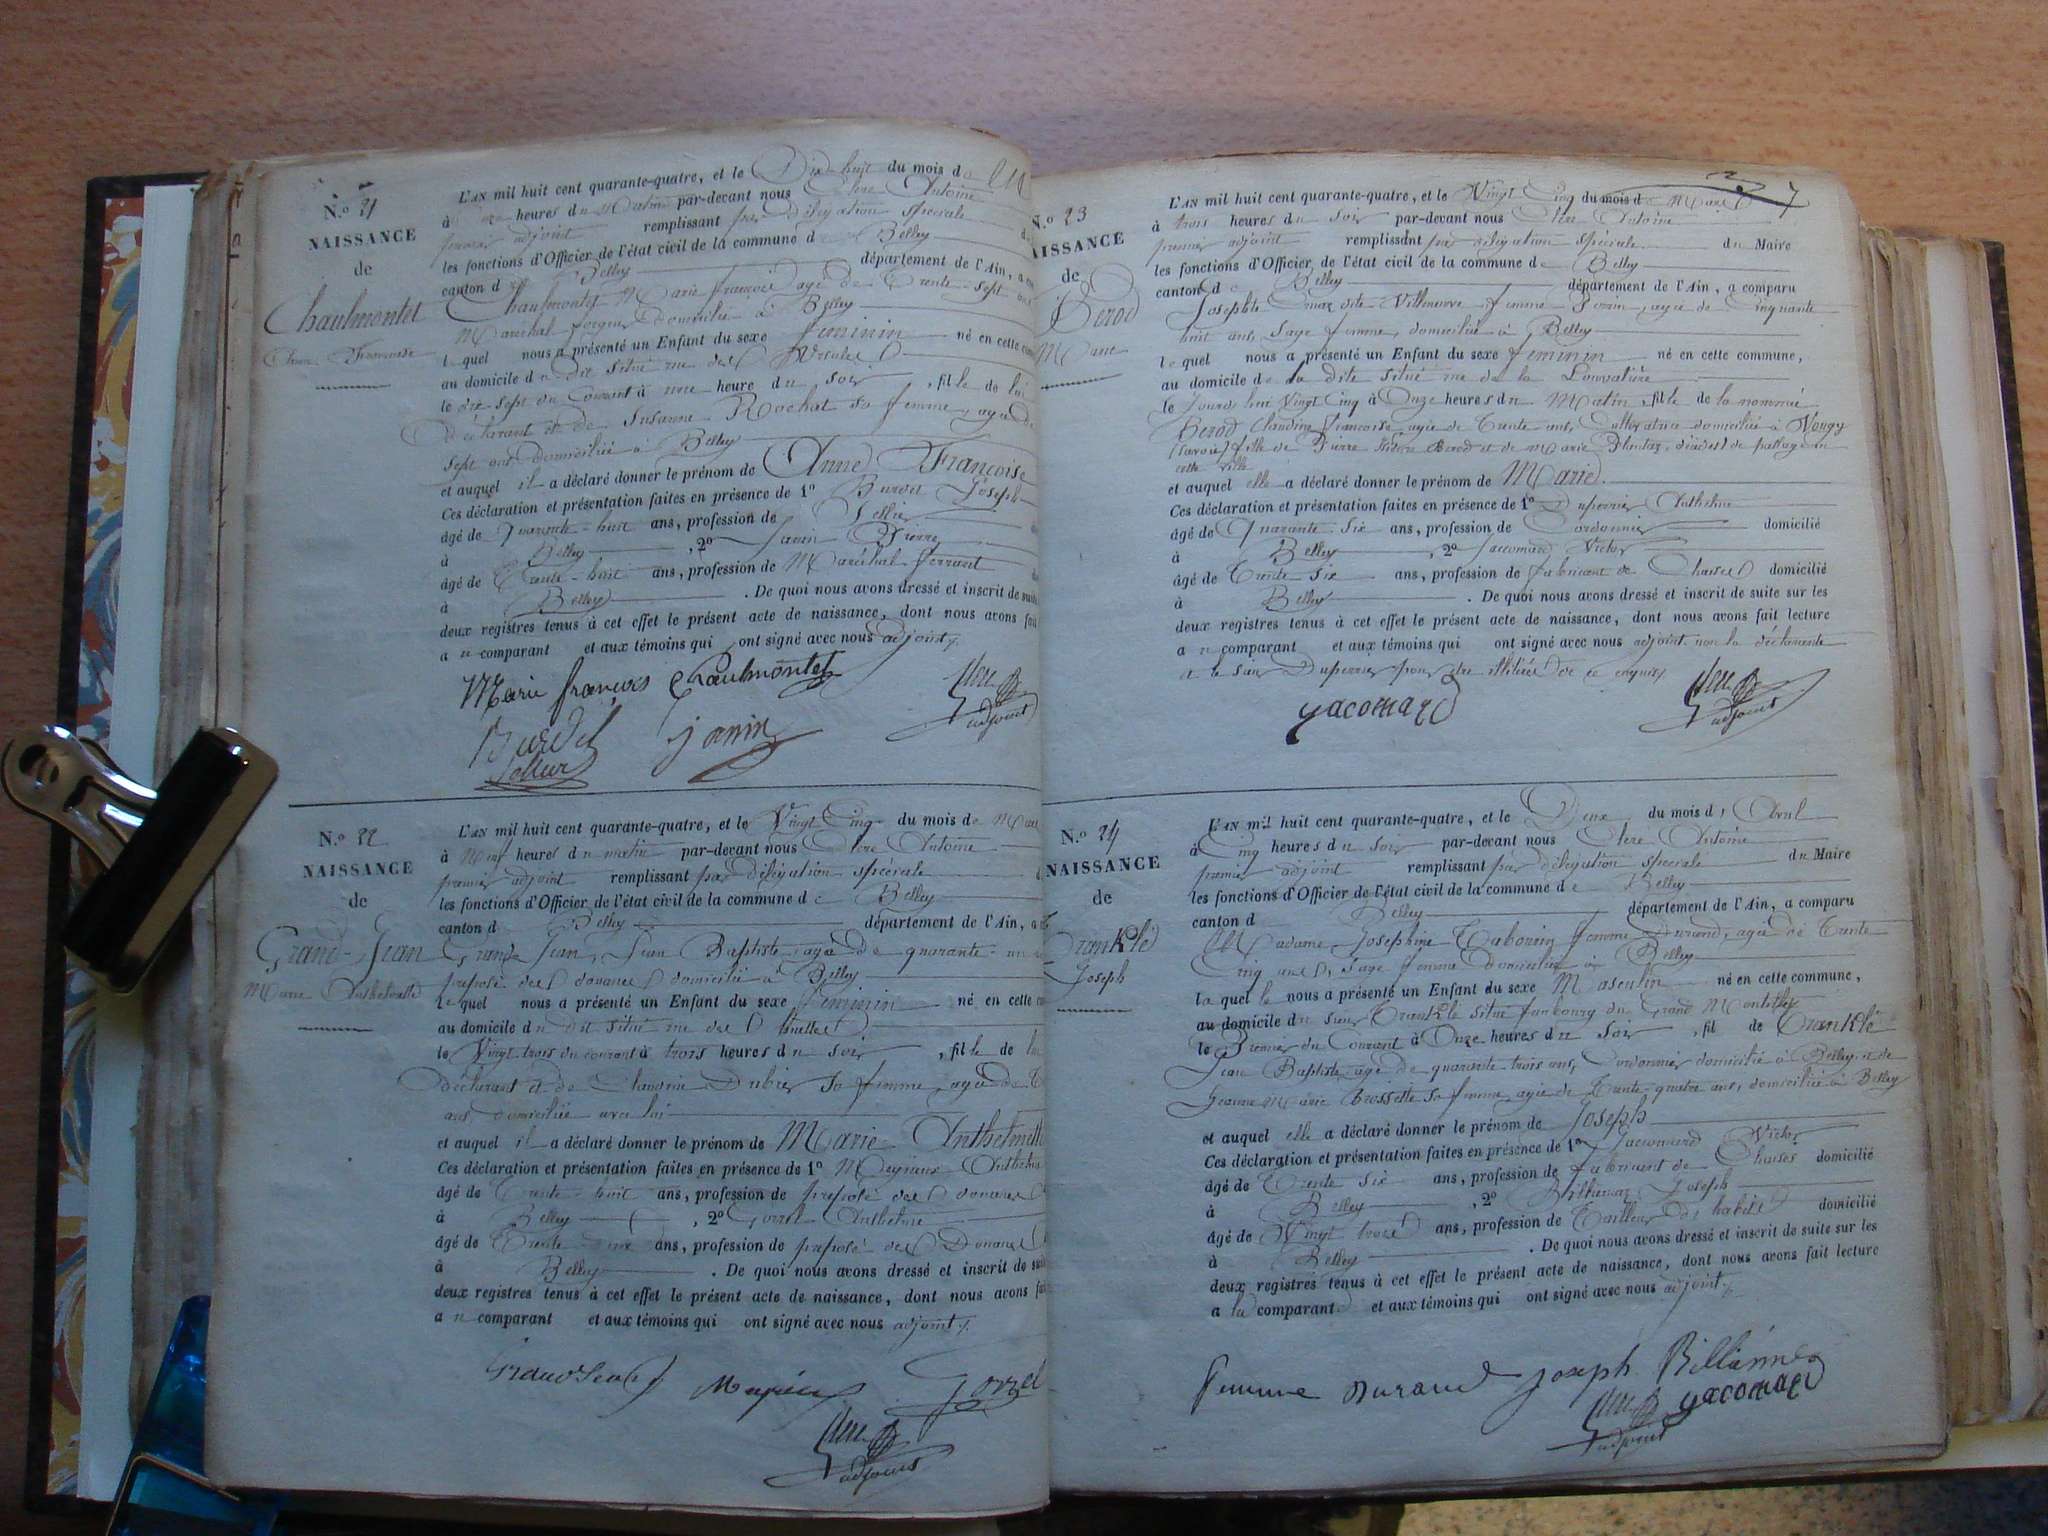 N.o 21
NAISSANCE
de
Chaulmontet
Anne Francoise
L'AN mil huit cent quarante-quatre, et le Dix huit du mois de
à heures du Matin par-devant nous Clerc Antoine
premier adjoint remplissant par délégation spéciale
les fonctions d'Officier de l'état civil de la commune de Belley
canton de Belley département de l'Ain, a
Chaulmontet Marie françois agé de Trente-sept ans
Maréchal forgeur domicilié à Belley
lequel nous a présenté un Enfant du sexe féminin né en cette
au domicile de situé rue des
le dix-sept du Courant à une heure du soir, fille de lui
déclarant et de Susanne Rochat sa femme, agée de
sept ans domiciliée à Belley
et auquel il a déclaré donner le prénom de Anne Françoise
Ces déclaration et présentation faites en présence de 1o Burdet Joseph
âgé de Quarante-huit ans, profession de Sellier
à Belley, 2o Janin Pierre
âgé de Trente-huit ans, profession de Maréchal ferrant
à Belley. De quoi nous avons dressé et inscrit de suite
deux registres tenus à cet effet le présent acte de naissance, dont nous avons fait
au comparant et aux témoins qui ont signé avec nous adjoint
Marie françois Chaulmontet
Burdet
Sellier
janin
Clerc
adjoint
N.o 22
NAISSANCE
de
Grand-Jean
Marie Anthelmette
L'AN mil huit cent quarante-quatre, et le Vingt Cinq du mois de Mars
à Neuf heures du matin par-devant nous Clerc Antoine
premier adjoint remplissant par délégation spéciale
les fonctions d'Officier de l'état civil de la commune de Belley
canton de Belley département de l'Ain, a
Grand Jean, Jean Baptiste, agé de quarante-un
préposé des douanes domicilié à Belley
lequel nous a présenté un Enfant du sexe féminin né en cette
au domicile du dit situé rue des
le Vingt trois du courant à trois heures du soir, fille de lui
déclarant et de Claudine Dubier sa femme, agée de
ans, domiciliée avec lui
et auquel il a déclaré donner le prénom de Marie Anthelmette
Ces déclaration et présentation faites en présence de 1o Meyrieux Anthelme
âgé de Trente-huit ans, profession de préposé des douanes
à Belley, 2o Gorrel Anthelme
âgé de Trente ans, profession de préposé des Douanes
à Belley. De quoi nous avons dressé et inscrit de suite
deux registres tenus à cet effet le présent acte de naissance, dont nous avons fait
au comparant et aux témoins qui ont signé avec nous adjoint
Grand Jean
Gorrel
Clerc
adjoint
7
N.o 23
NAISSANCE
de
Berod
Marie
L'AN mil huit cent quarante-quatre, et le Vingt Cinq du mois de Mars
à trois heures du soir par-devant nous Clerc Antoine
premier adjoint remplissant par délégation spéciale du Maire
les fonctions d'Officier de l'état civil de la commune de Belley
canton de Belley département de l'Ain, a comparu
Josephte dite Villeneuve femme agée de Cinquante
huit ans, Sage femme, domiciliée à Belley
lequel nous a présenté un Enfant du sexe féminin né en cette commune,
au domicile de la dite situé rue de la
le Jourd'hui Vingt Cinq à Onze heures du Matin, fille de la nommée
Berod Claudine Françoise, agée de Trente ans, Cultivatrice domiciliée à Vougy
(Savoie) fille de Pierre Berod et de Marie décédés de passage en
cette ville
et auquel elle a déclaré donner le prénom de Marie
Ces déclaration et présentation faites en présence de 1o Duperrier Anthelme
âgé de Quarante-six ans, profession de Cordonnier domicilié
à Belley, 2o Jaccomard Victor
âgé de Trente six ans, profession de fabricant de Chaises domicilié
à Belley. De quoi nous avons dressé et inscrit de suite sur les
deux registres tenus à cet effet le présent acte de naissance, dont nous avons fait lecture
au comparant et aux témoins qui ont signé avec nous adjoint non la déclarante
et le sieur Duperrier pour être illitérés de ce enquis
yacomard
Clerc
adjoint
N.o 24
NAISSANCE
de
Tranklé
Joseph
L'AN mil huit cent quarante-quatre, et le Deux du mois d'Avril
à Cinq heures du soir par-devant nous Clerc Antoine
premier adjoint remplissant par délégation spéciale du Maire
les fonctions d'Officier de l'état civil de la commune de Belley
canton d Belley département de l'Ain, a comparu
Madame Josephine Tabourin femme Durand, agée de Trente
Cinq ans, Sage femme domiciliée à Belley
laquelle nous a présenté un Enfant du sexe Masculin né en cette commune,
au domicile du sieur Tranklé situé faubourg du Grand
le Premier du Courant à Onze heures du soir, fil de Tranklé
Jean Baptiste agé de quarante-trois ans, Cordonnier domicilié à Belley, et de
Jeanne Marie Brossette sa femme, agée de Trente-quatre ans, domiciliée à Belley
et auquel elle a déclaré donner le prénom de Joseph
Ces déclaration et présentation faites en présence de 1o Jaccomard Victor
âgé de Trente six ans, profession de fabricant de Chaises domicilié
à Belley, 2o Joseph
âgé de Vingt trois ans, profession de Tailleur d'habits domicilié
à Belley. De quoi nous avons dressé et inscrit de suite sur les
deux registres tenus à cet effet le présent acte de naissance, dont nous avons fait lecture
a la comparante et aux témoins qui ont signé avec nous adjoint
femme Durand joseph
Clerc yacomard
adjoint